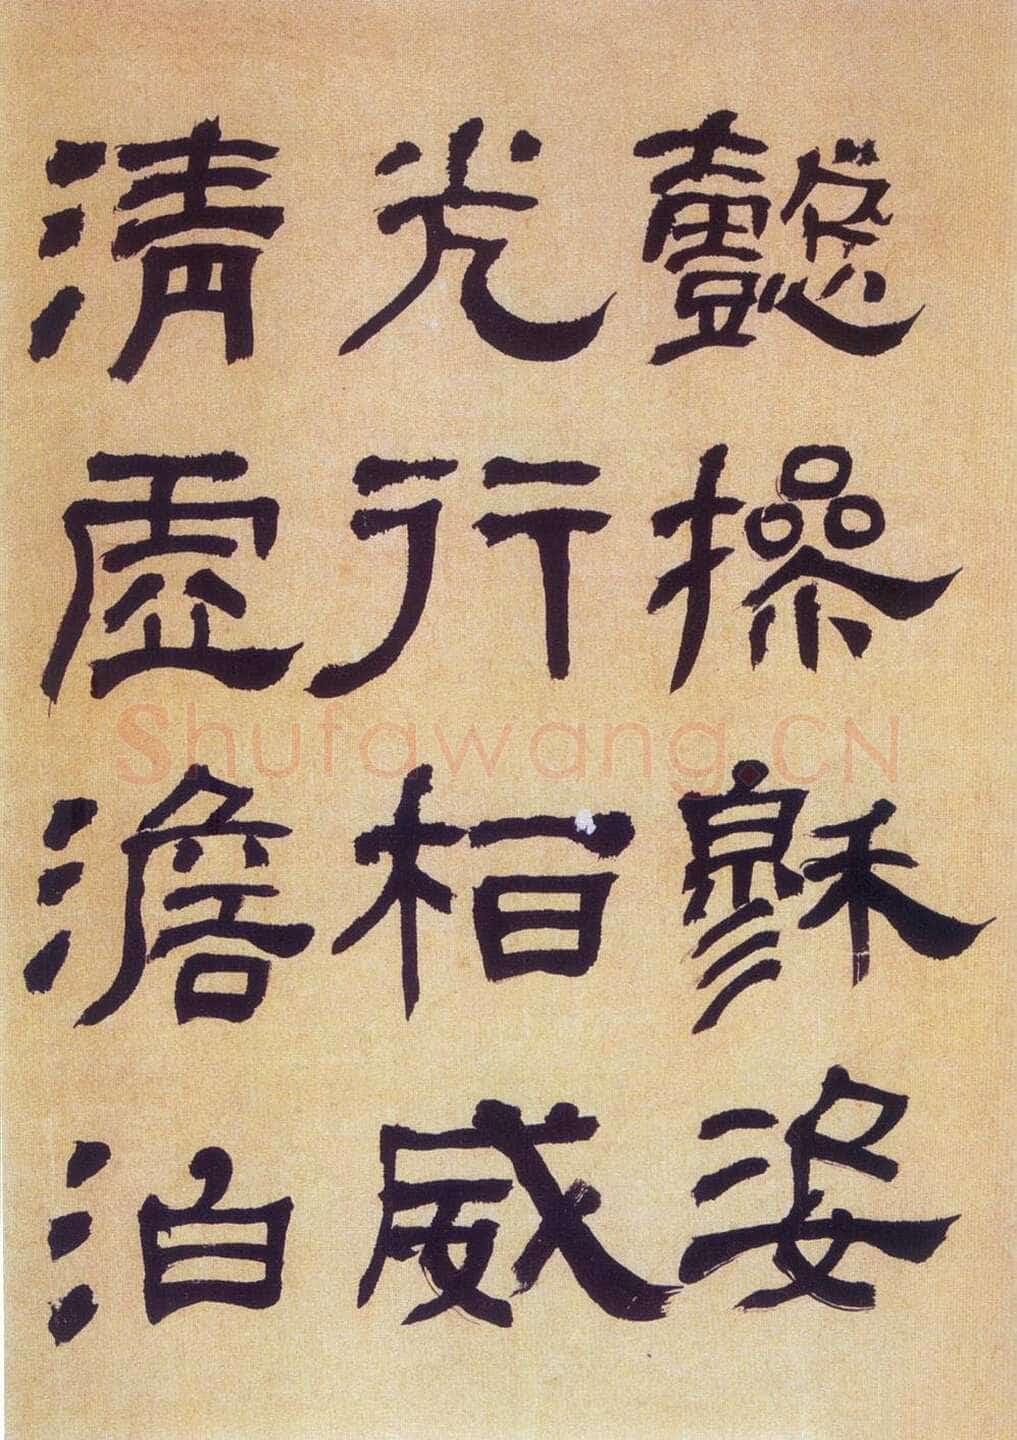 懿操穌姿
光行相威
清虛澹泊
Shufawang.CN